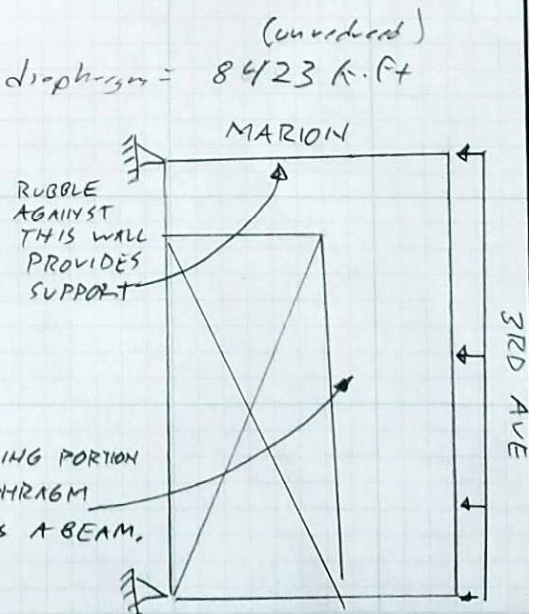 (unreduced)
diaphragm = 8423 k·ft
MARION
RUBBLE
AGAINST
THIS WALL
PROVIDES
SUPPORT
3RD AVE
ING PORTION
HRAGM
S A BEAM.